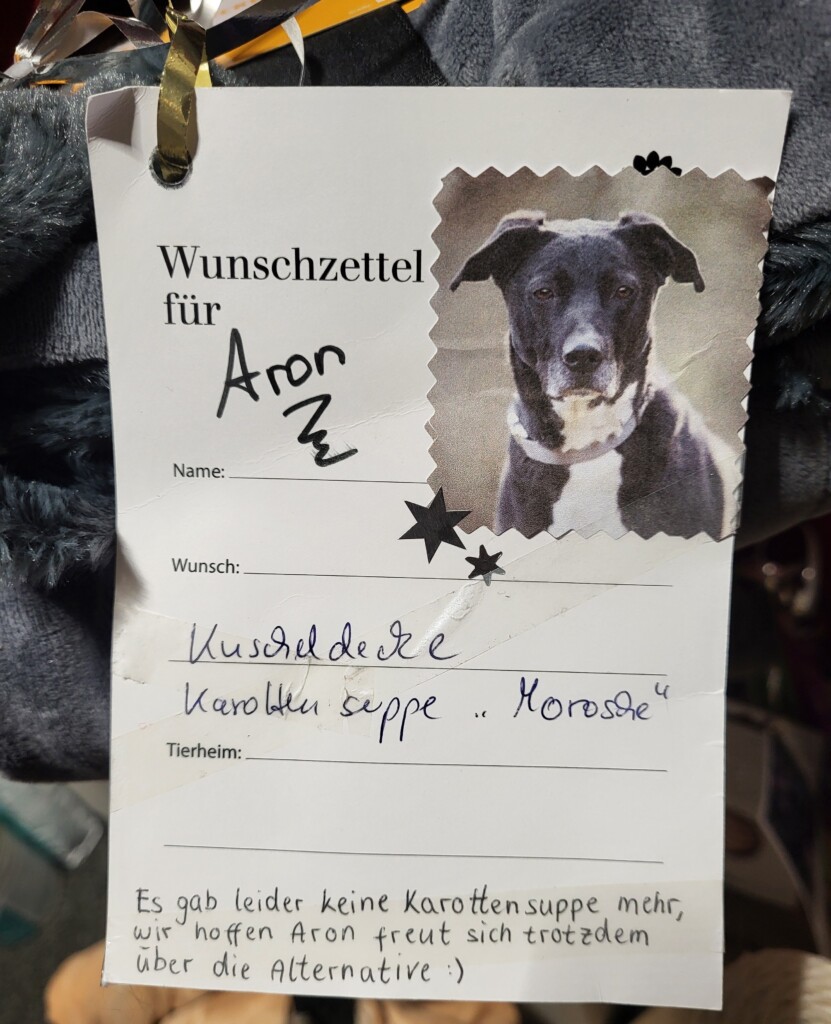 Wunschzettel
für
Aron
Name:
Wunsch:
Kuscheldecke
Karottensuppe „Morosche“
Tierheim:
Es gab leider keine Karottensuppe mehr,
wir hoffen Aron freut sich trotzdem
über die Alternative :)